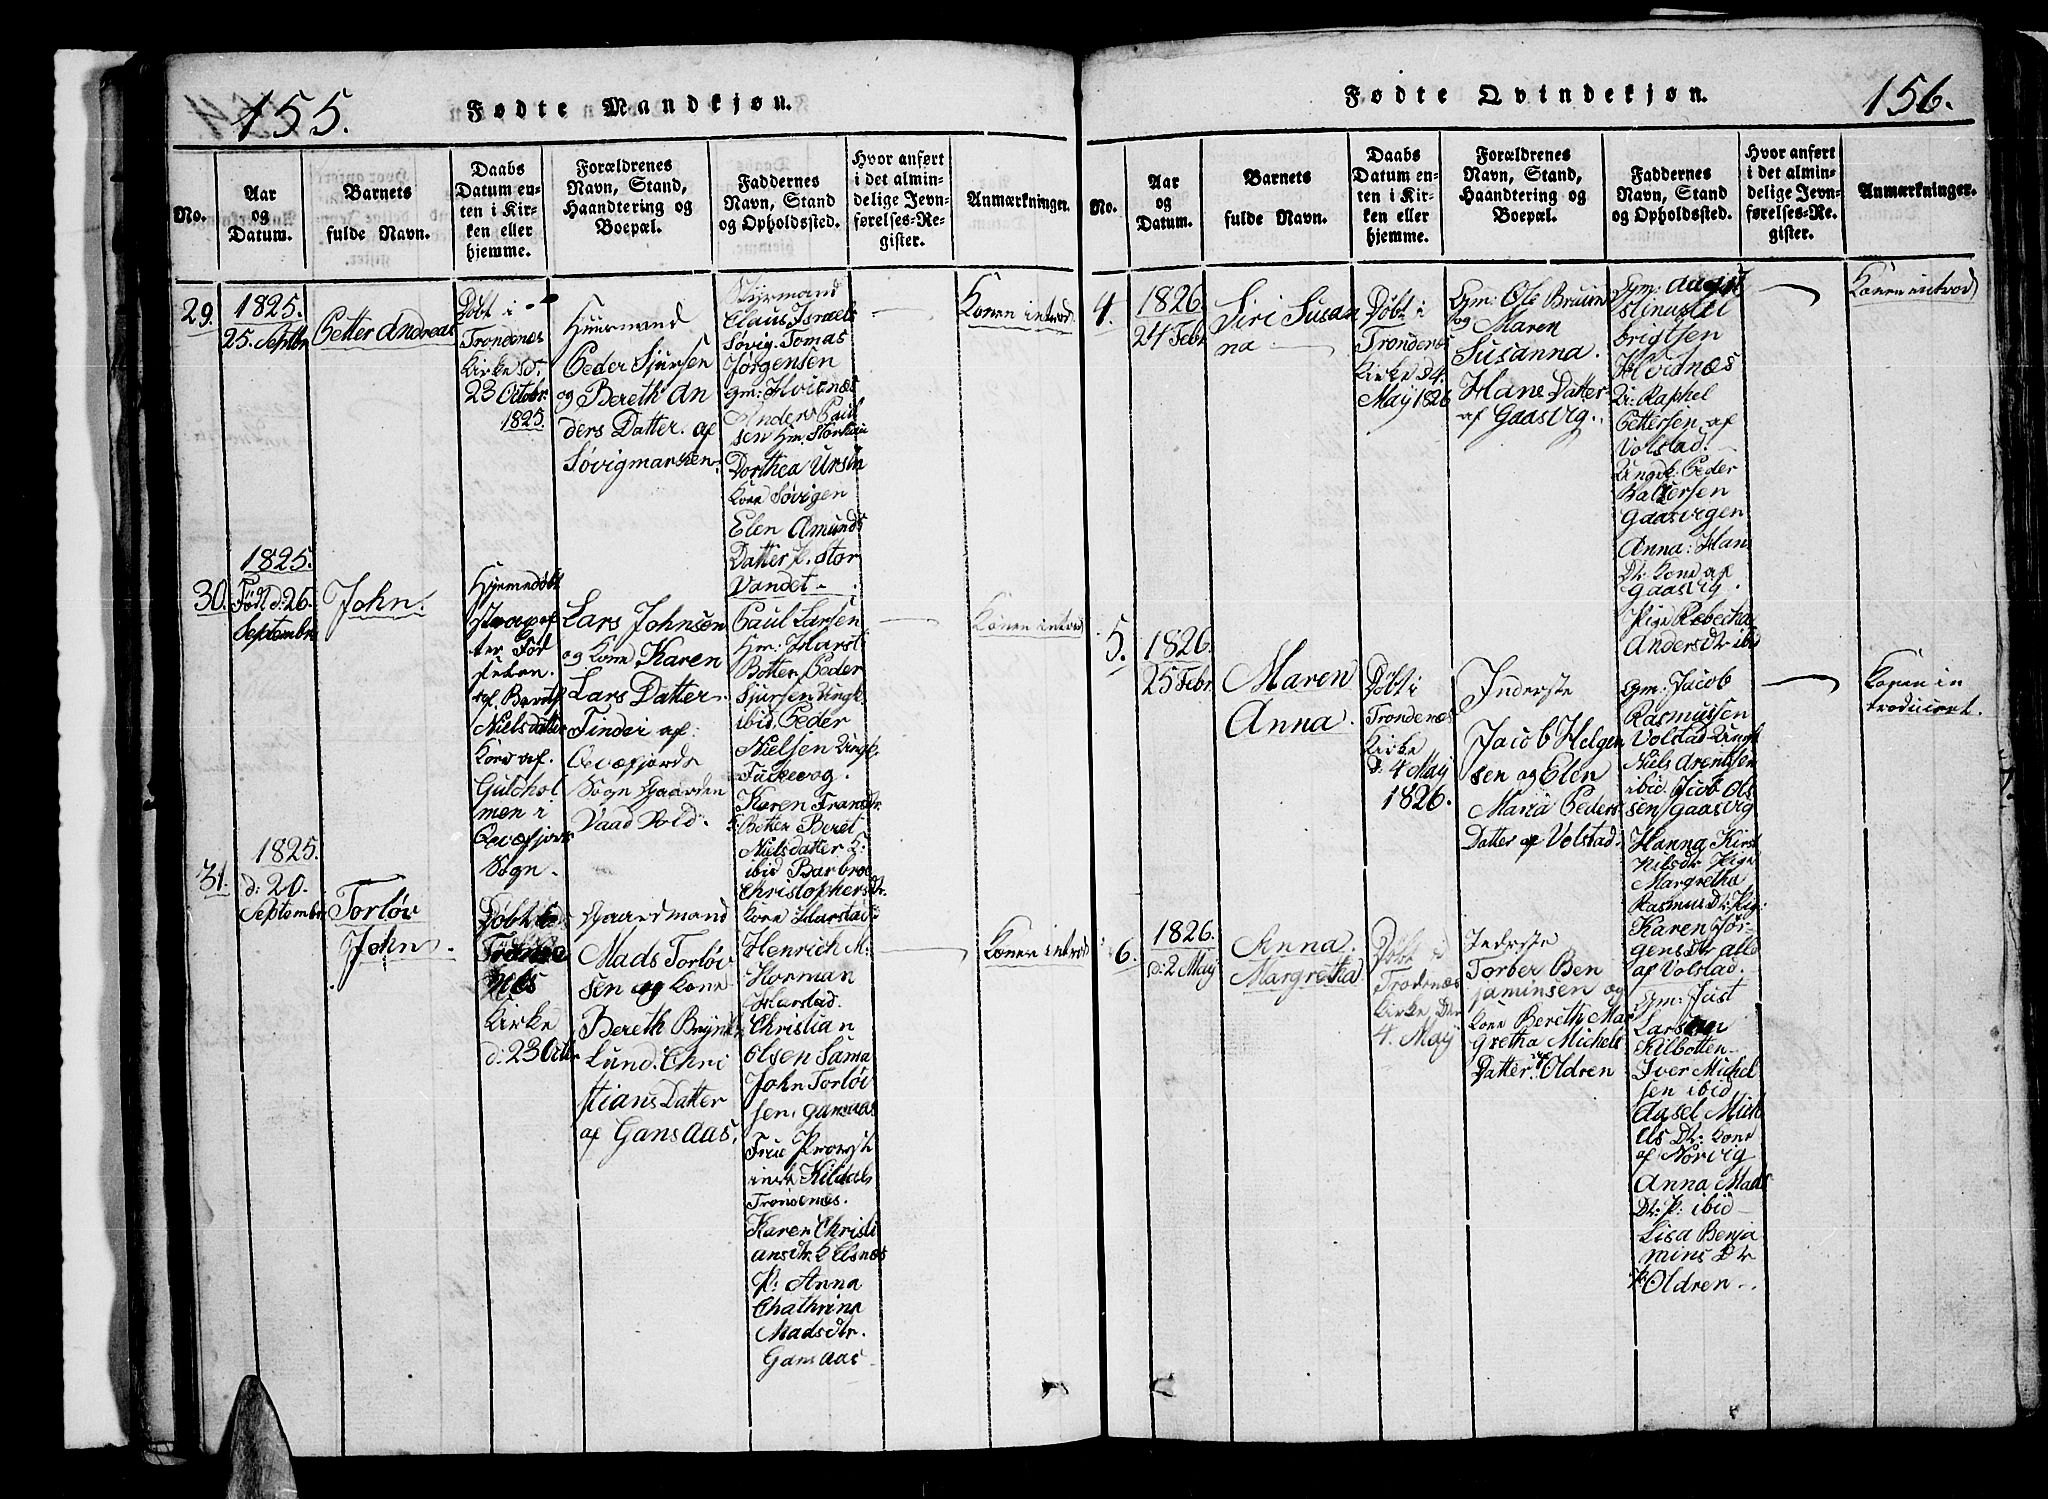 155.
Fødte Mandkjøn.
No.
Aar
og
Datum.
Barnets
fulde Navn.
Daabs
Datum en-
ten i Kir-
ken eller
hjemme.
Forældrenes
Navn, Stand,
Haandtering og
Boepæl.
Faddernes
Navn, Stand
og Opholdssted.
Hvor anført
i det almin-
delige Jevn-
førelses-Re-
gister.
Anmærkninger.
29.
1825.
25. Septbr
Petter Andreas
Døbt i
Trondenes
Kirke d:
23 Octobr
1825.
Huusmand
Peder Sjursen
og Bereth An
ders Datter. af
Søvigmarken.
Styrmand
Claus Israels
Søvig. Tomas
Jørgensen
Gm: Hvidnæs
Anders Paul
sen Hm: Storhau
Dorthea Ursin
Kone Søvigen
Elen Amunds
Datter P. Stor
Vandet.
Konen introd
30.
1825.
Född d: 26.
Septembr
John.
Hjemmedøbt
strax ef
ter Fød
selen.
af Bereth
Nielsdatter
Kone af.
Gulehol
men i
Qvæfjors
Sogn.
Lars Johnsen
og Kone Karen
Lars Datter.
Finder af.
Qvæfjords
Sogn Gaarden
Vaad Vold.
Paul Larsen
Hm: Harst
Botten Peder
Sjursen Ungk:
ibid. Peder
Nielsen Ungk:
Fuskevog.
Karen Fransdr.
Botten Beret
Nielsdatter K:
ibid Barbroe
Christophersdr.
Kone Harstad
Konen introd
31.
1825.
d: 20.
Septembr
Torløv
John.
Døbt
Tronde
nes
Kirke
d: 23 Octbr
Gaardmand
Mads Torløv
sen og Kone
Bereth Brynne
Lund. Chri
stians Datter
af Gansaas.
Henrich M:
Horman
Harstad.
Christian
Olsen Sama
John Torløv
sen. Gansaas
Frue Provst
inde Kildals
Trondenes.
Karen Christi
ansdtr. K Elsnæs
P: Anna
Chathrina
Madsdtr.
Gansaas
Konen introd
Fødte Qvindekjøn.
156.
No.
Aar
og
Datum.
Barnets
fulde Navn.
Daabs
Datum en-
ten i Kir-
ken eller
hjemme.
Forældrenes
Navn, Stand,
Haandtering og
Boepæl.
Faddernes
Navn, Stand
og Opholdssted.
Hvor anført
i det almin-
delige Jevn-
førelses-Re-
gister.
Anmærkninger.
4.
1826
24 Febr
Siri Susan
na
Døbt i
Trondenes
Kirke d 4.
May 1826
Gm: Ole Bruun
og Maren
Susanna.
Hans Datter
af Gaasvig.
Gm: Augu
stinus
brigtsen
Hvidnæs
Dr: Raphel
Pettersen af
Volstad.
Ungk: Peder
Baltersen
Gaasvigen
Anna: Hans
Dr: Kone af
Gaasvig.
Pige Rebecha
Anders Dr ibid
Konen introd
5.
1826.
25 Febr
Maren
Anna.
Døbt i
Trondenæs
Kirke
d: 4 May
1826.
Inderste
Jacob Helgen
sen og Elen
Maria Peders
Datter af Volstad.
Gm: Jacob
Rasmussen
Volstad Ungk:
Niels Arentsen
ibid Jacob Ol
sen Gaasvig
Hanna Kirst
Nilsdr Pige
Margretha
Rasmus Dr Pig:
Karen Jør-
gensdr alle
af Volstad.
Konen in
troduceret.
6.
1826.
d: 2 May
Anna.
Margretha.
Døbt i
Trodenæs
Kirke Den
4. May
Inderste
Torber Ben
jaminsen og
Kone Bereth Mar
gretha Michels
Datter. af Oldren
Gm: Just
Larsen
Kilbotten
Iver Michel
sen ibid
Axsel Mich
els Dr: Kone
af Nørvig
Anna Mads
Dr: P: ibid
Lisa Benja
mins Dr
P: Oldren